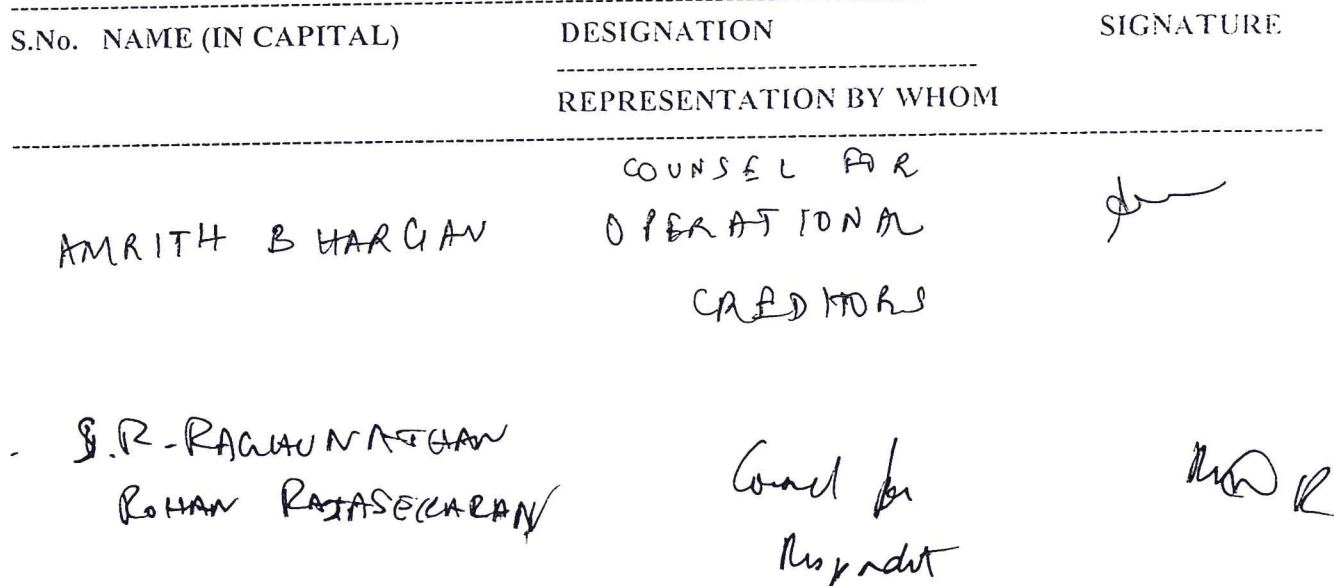 S.No. NAME (IN CAPITAL) DESIGNATION SIGNATURE
REPRESENTATION BY WHOM
COUNSEL FOR
AMRITH BHARGAV OPERATIONAL
CREDITORS
S.R-RAGHUNATHAN
ROHAN RAJASEKARAN Counsel for
Respondent